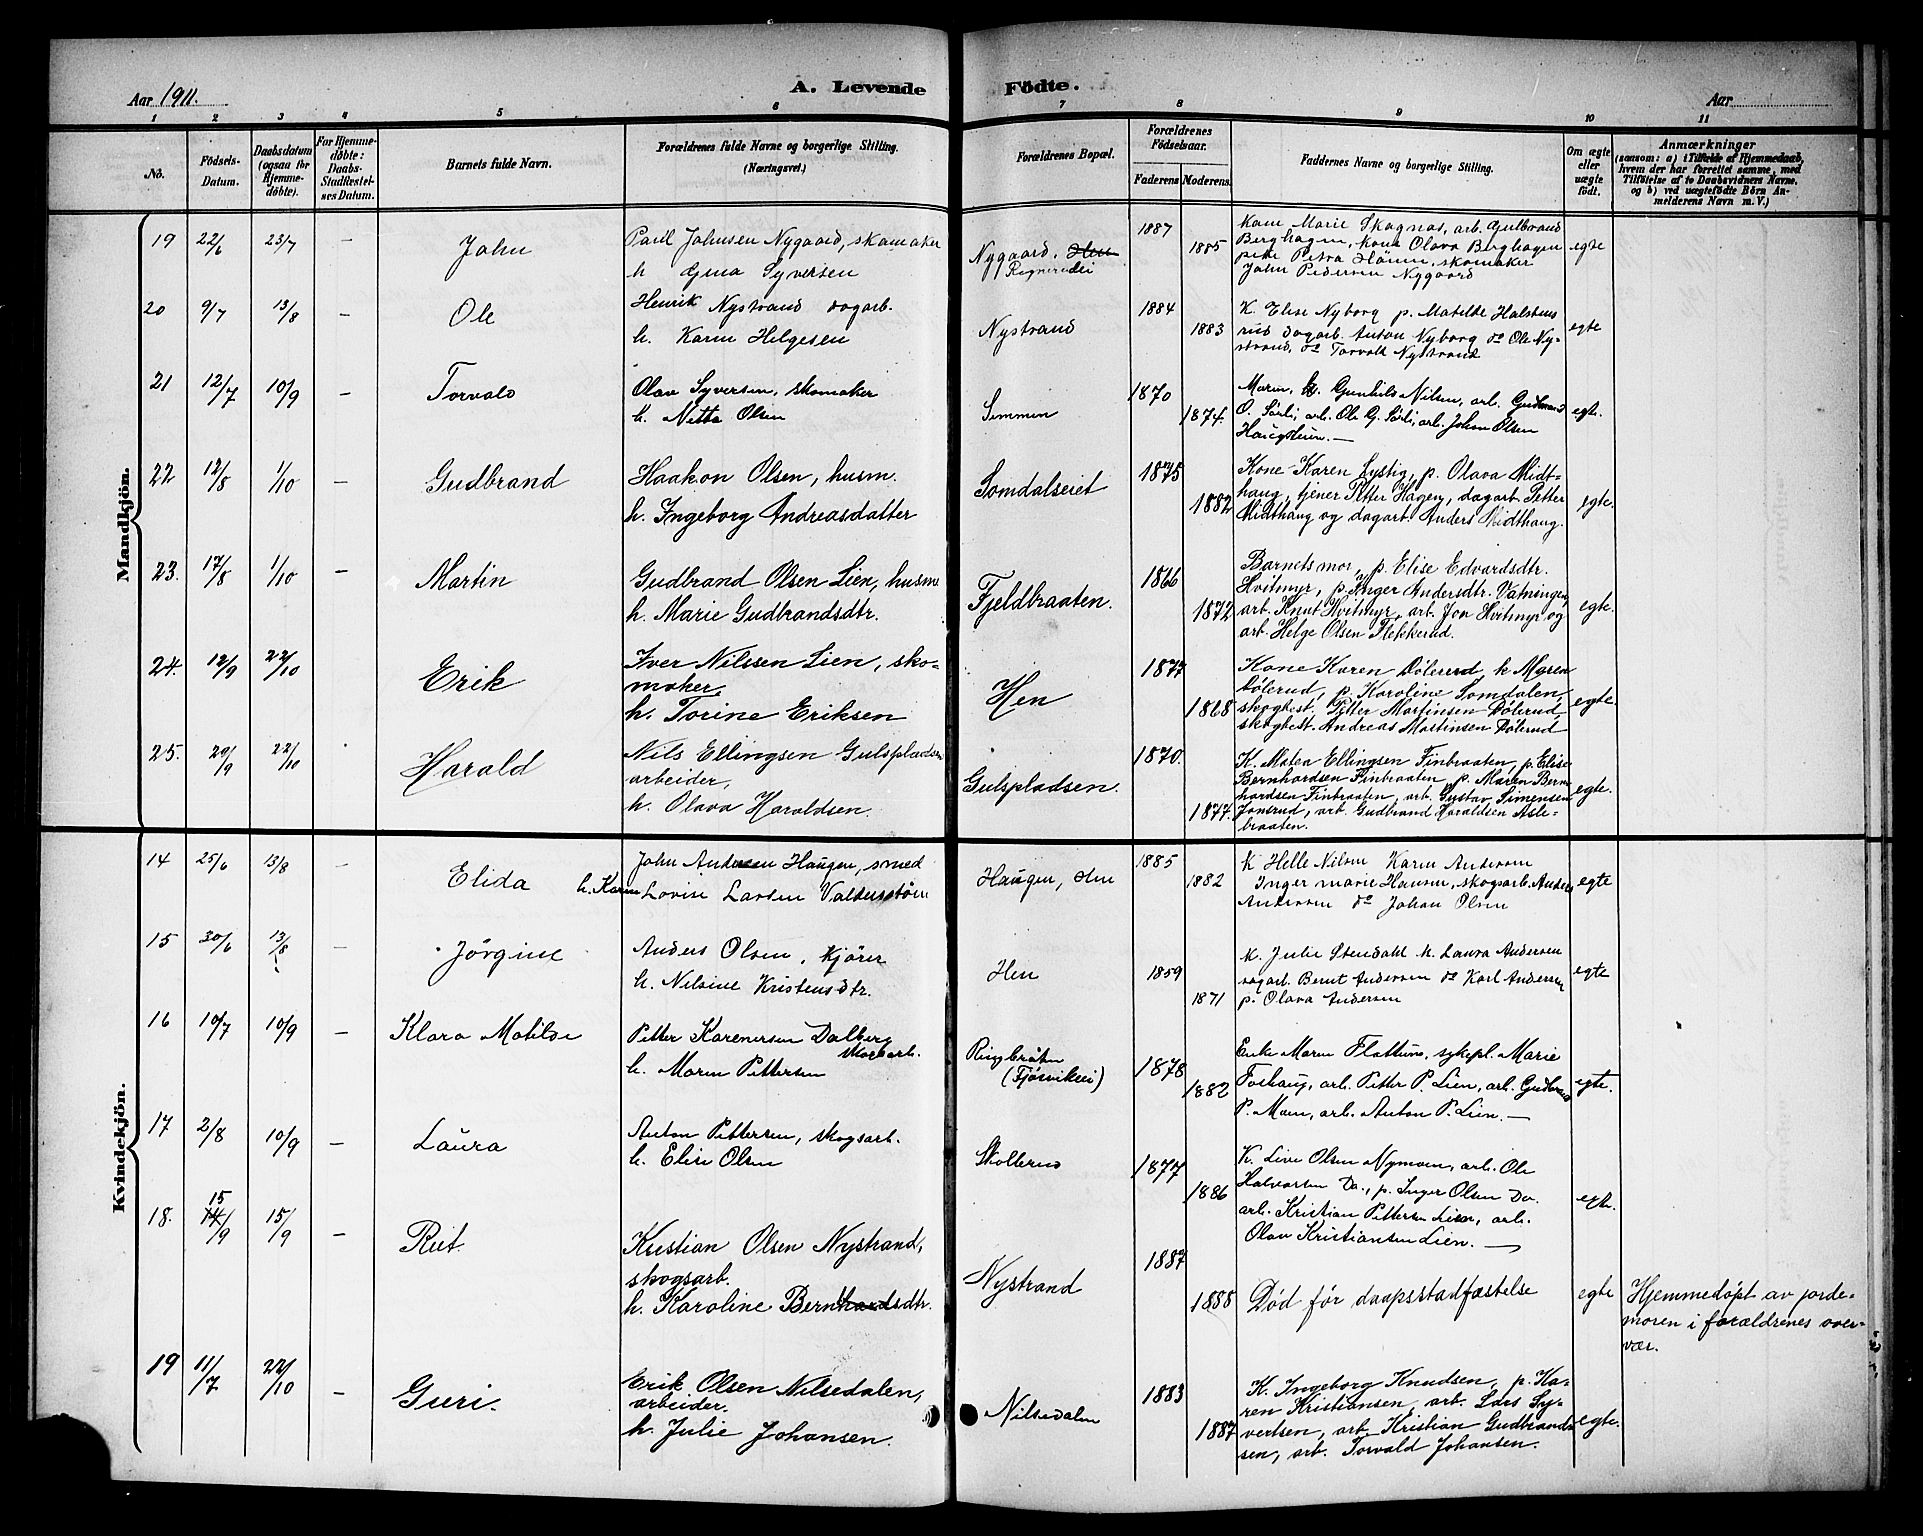 Aar 1911.
A. Levende Födte.
Aar
1 2 3 4 5 6 7 8 9 10 11
No.
Födsels-Datum.
Daabsdatum (ogsaa for Hjemmedöbte).
For Hjemmedöbte: Daabs-Stadfæstelses Datum.
Barnets fulde Navn.
Forældrenes fulde Navne og borgerlige Stilling.
(Næringsvei.)
Forældrenes Bopæl.
Forældrenes Födselsaar.
Faderens. Moderens.
Faddernes Navne og borgerlige Stilling.
Om ægte eller uægte födt.
Anmærkninger
(saasom: a) i Tilfælde af Hjemmedaab, hvem der har forrettet samme, med Tilföielse af to Daabsvidners Navne, og b) ved uægtefödte Börn Anmelderens Navn m. V.)
Mandkjön.
19 22/6 23/7 — John
Paul Johnsen Nygaard, skomaker
h Gina Syversen
Nygaard, Hen
Ragnerudei
1887
1885
Kone Marie Skagnæs, arb. Gulbrand
Berghagen, kona Olava Berghagen
pike Petra Hönen, skomaker
John Pedersen Nygaard
egte
20 9/7 13/8 — Ole
Henrik Nystrand dagarb.
h. Karen Helgesen
Nystrand
1884
1883
K. Elise Nyborg p. Matilde Halstens
rud dagarb. Anton Nyborg do Ole Ny-
strand, do Torvald Nystrand
egte
21 12/7 10/9 — Torvald
Olav Syversen, skomaker
h. Netta Olsen
Semmen
1870
1874.
Moren, k. Gunhild Nilsen, arb. Gudmund
O. Sörli, arb. Ole G. Sörli, arb. Johan Olsen
Haugsteun. —
egte.
22 12/8 1/10 — Gudbrand
Haakon Olsen, husm.
h. Ingeborg Andreasdatter
Somdalseiet
1875
1882
Kone Karen Lystig, p. Olava Midt-
haug, tjener Petter Hagen, dagarb. Petter
Midthaug og dagarb. Anders Midthaug.
egte.
23. 17/8 1/10 — Martin
Gudbrand Olsen Lien, husm
h. Marie Gudbrandsdtr.
Fjeldbraaten.
1866
1872
Barnets mor, p. Elise Edvardsdtr.
Hvitmyr, p. Inger Andersdtr. Vatningen,
arb. Knut Hvitmyr, arb. Jon Hvitmyr og
arb. Helge Olsen Flekkerud.
egte.
24. 12/9 22/10 Erik
Iver Nilssen Lien, sko-
maker,
h. Torine Eriksen
Hen
1877
1868
Kone Karen Dölerud, k Maren
Dölerud, p. Karoline Somdalen
skogbest. Petter Martinsen Dölerud,
skogbest. Andreas Martinsen Dölerud
egte
25. 29/9 22/10 Harald
Nils Ellingsen Gulspladsen
arbeider,
h. Olava Haraldsen.
Gulspladsen.
1870.
1877.
K. Maten Ellingsen Finbraaten, p. Elise
Bernhardsen Finbraaten, p. Maren Bern
hardsen Finbraaten, arb. Gustav Simensen
Jonsrud, arb. Gudbrand Haraldsen Asle-
braaten.
egte.
Kvindekjön.
14 25/6 13/8 — Elida
John Andersen Haugen, smed
h. Karen Lovise Larsen
Haugen, Hen
1885
1882
K Helle Nilsen Karen Andersen
Inger marie Hansen, skogsarb. Anders
Andersen do Johan Olsen
egte
15 30/6 13/8 — Jörgine
Anders Olsen, Kjörer
h. Nilsine Kristensdtr.
Hen
1859
1871
K. Julie Stendahl k. Laura Andersen
sagarb. Bernt Andersen do Karl Andersen
p. Olava Andersen
egte
16 10/7 10/9 — Klara Matilde
Petter Karenersen Dalberg
skogsarb.
h. Maren Pettersen
Ringbråten
(Tjörvikeei)
1878
1882
Enke Maren Flattum, sykepl. Marie
Foshaug, arb. Petter P. Lien, arb. Gudbrand
P. Moen, arb. Anton P. Lien. —
egte.
17 2/8 10/9 — Laura
Anton Pettersen, skogsarb.
h. Elise Olsen
Skollerud
1877
1886
K. Live Olsen Nymoen, arb. Ole
Halvorsen Do., p. Inger Olsen Do.
arb. Kristian Pettersen Lien, arb.
Olav Kristiansen Lien. —
egte.
18. 15 14/9 15/9 — Rut.
Kristian Olsen Nystrand,
skogsarb.
h. Karoline Bernhardsdtr.
Nystrand
1887
1888
Död för daapsstadfæstelse
egte
Hjemmedöpt av jorde-
moren i forældrenes over-
vær.
19 11/7 22/10 — Guri.
Erik Olsen Nilsedalen,
arbeider.
h. Julie Johansen.
Nilsedalen
1883
1887
K. Ingeborg Knudsen, p. Ka-
ren Kristiansen, arb. Lars Sy-
vertsen, arb. Kristian Gudbrand-
sen, arb. Torvald Johansen.
egte.